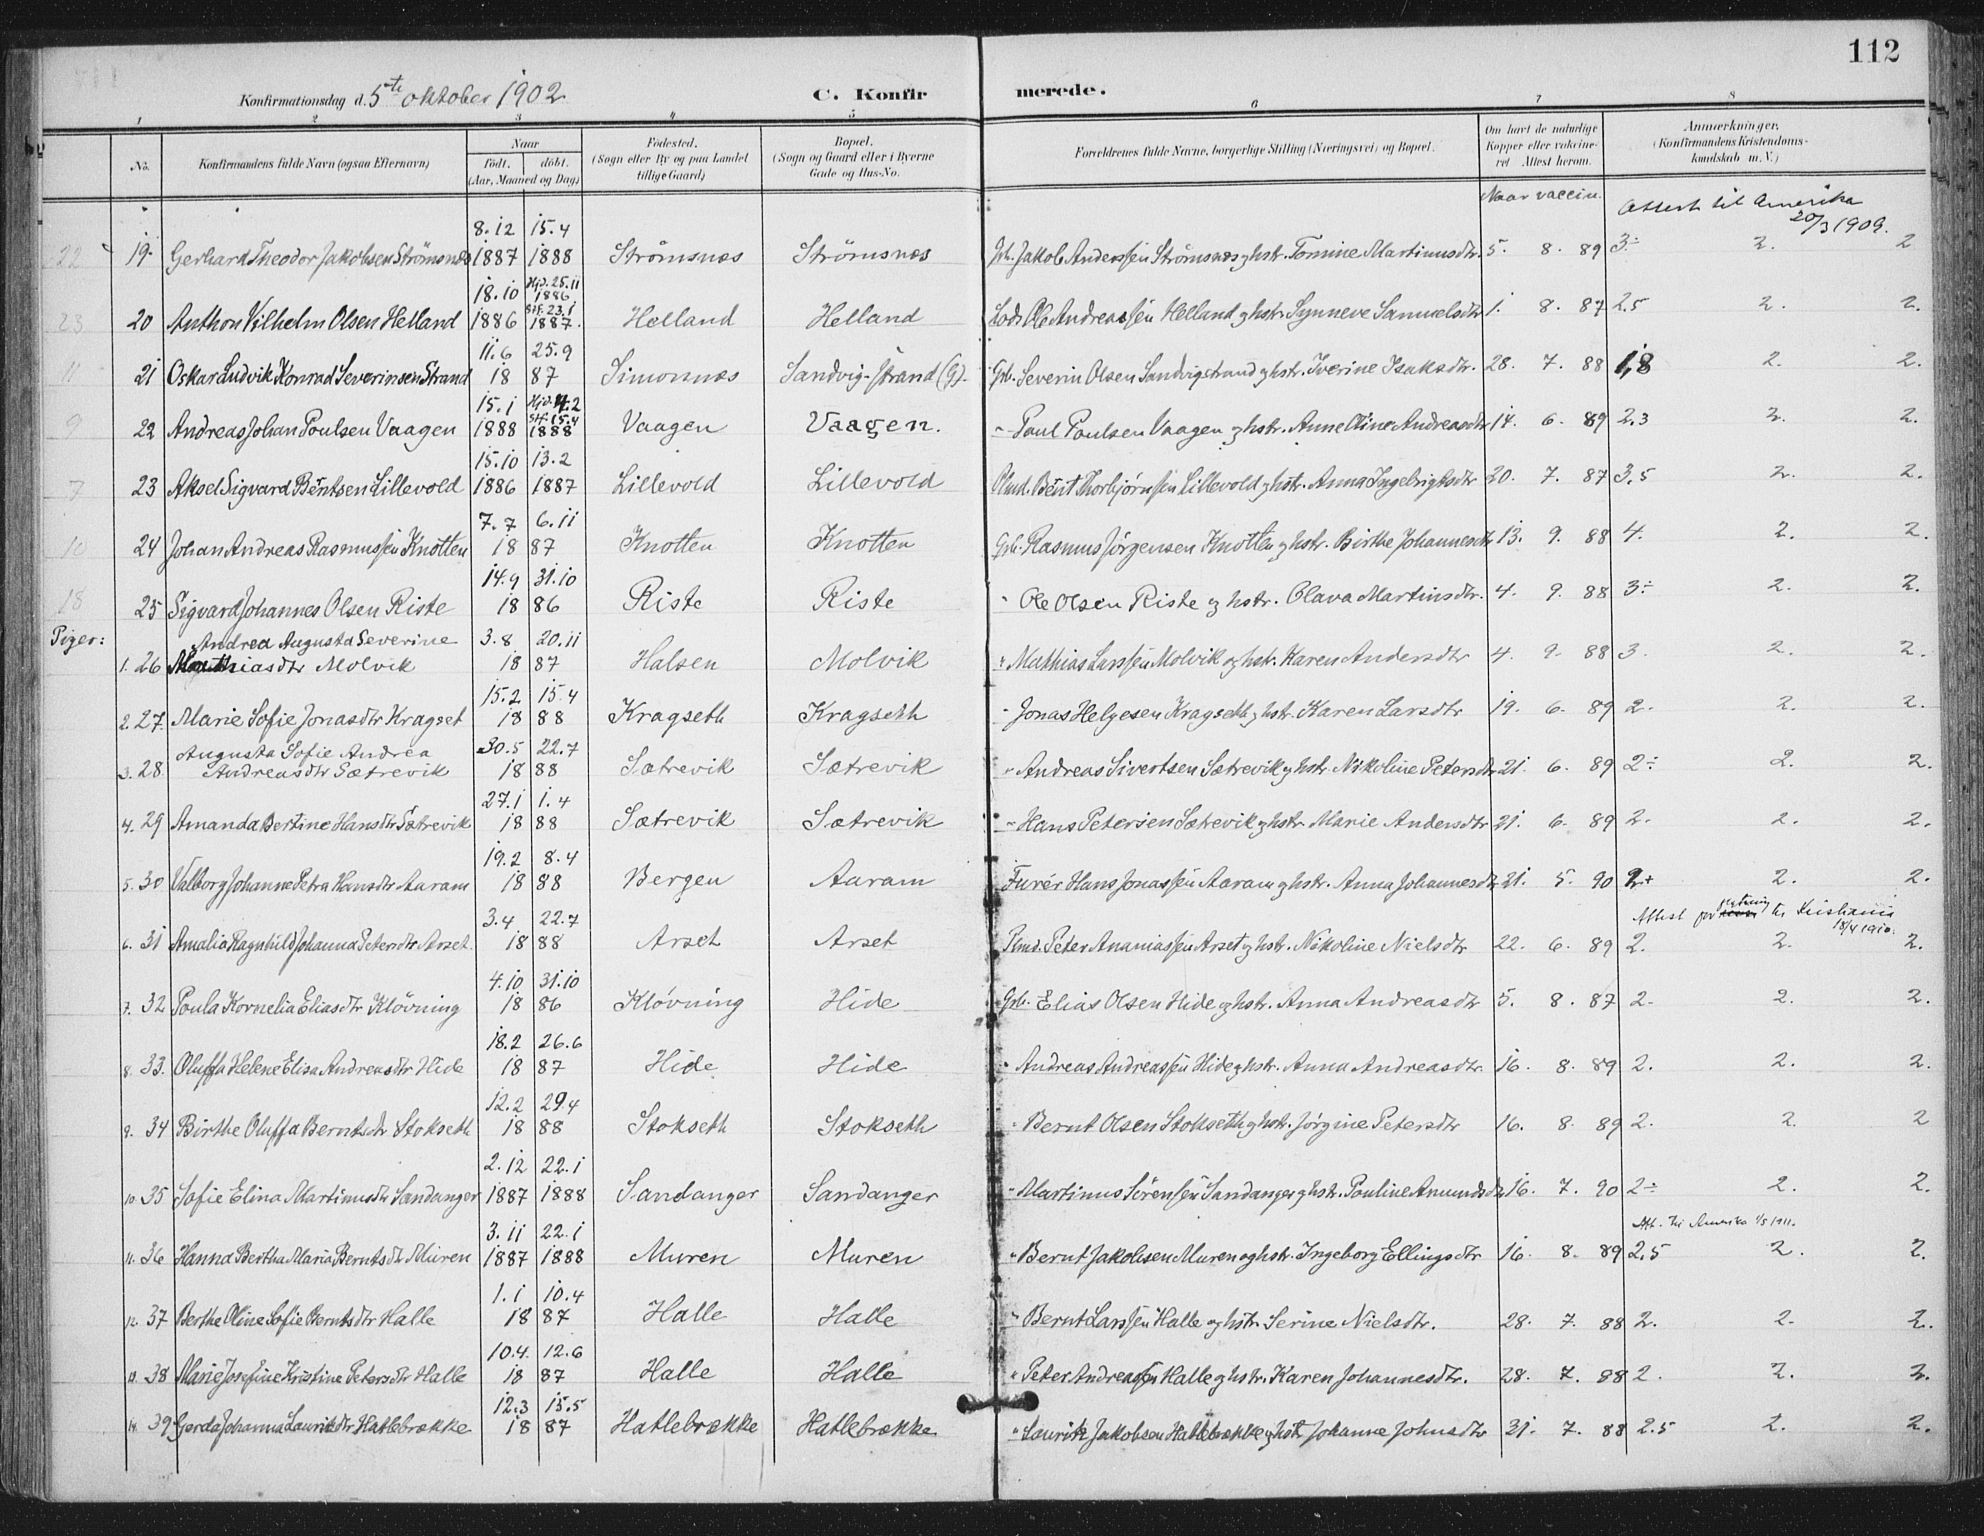 112
Konfirmationsdag d. 5te oktober 1902 C. Konfirmerede.
1 2 3 4 5 6 7 8
No. Konfirmandens fulde Navn (ogsaa Efternavn) Naar født. døbt. (Aar, Maaned og Dag) Fødested. (Sogn eller By og paa Landet tillige Gaard) Bopæl. (Sogn og Gaard eller i Byerne Gade og Hus-No. Forældrenes fulde Navne, borgerlige Stilling (Næringsvei) og Bopæl. Om havt de naturlige Kopper eller vaccineret. Attest herom. Anmærkninger. (Konfirmandens Kristendomskundskab m. V.)
Naar vaccin. Attest til Amerika 20/3 1909.
22 19. Gerhard Theodor Jakobsen Strömsnæs 8.12 1887 15.4 1888 Strømsnæs Strømsnæs Gbr. Jakob Anderssen Strömsnæs og hstr. Tomine Martinusdtr. 5. 8. 89 3÷ 2. 2
23 20 Anthon Vilhelm Olsen Helland 18.10 1886 Hjd. 25.11 1886 Stf. 23.1 1887. Helland Helland Lods Ole Andreassen Helland og hstr. Synneve Samuelsdtr 1. 8. 87 2.5 2. 2.
11 21 Oskar Ludvik Konrad Severinsen Strand 11.6 25.9 18 87 Simonsnæs Sandvig-strand (G). Gbr. Severin Olsen Sandvigstrand og hstr. Iverine Isaksdtr. 28. 7. 88 1,8 2. 2.
9 22 Andreas Johan Poulsen Vaagen 15.1 1888 Hjd. 4.2 Stf. 15.4 1888 Vaagen Vaagen. " Poul Poulsen Vaagen og hstr. Anne Oline Andreasdtr 14. 6. 89 2.3 2. 2.
7 23 Aksel Sigvard Bentsen Lillevold 15.10 1886 13.2 1887 Lillevold Lillevold Bent Thorbjørnsen Lillevold og hstr. Anna Ingebrigtsdtr 20. 7. 87 3.5 2. 2.
10 24 Johan Andreas Rasmussen Knotten 7.7 6.11 18 87 Knotten Knotten Gbr. Rasmus Jørgensen Knotten og hstr. Birthe Johannesdtr 13. 9. 88 4. 2. 2.
18 25 Sigvard Johannes Olsen Riste 14.9 31.10 18 86 Riste Riste " Ole Olsen Riste og hstr. Olava Martinsdtr. 4. 9. 88 3÷ 2. 2.
Piger:
1. 26 Andrea Augusta Severine Mathiasdtr Molvik 3.8 20.11 18 87 Halsen Molvik " Mathias Larssen Molvik og hstr. Karen Andersdtr 4. 9. 88 3. 2. 2.
2. 27. Marie Sofie Jonasdtr Kragset 15.2 15.4 18 88 Kragseth Kragseth " Jonas Helgesen Kragseth og hstr. Karen Larsdtr 19. 6. 89 2. 2. 2.
3. 28. Augusta Sofie Andrea Andreasdtr Sætrevik 30.5 22.7 18 88 Sætrevik Sætrevik " Andreas Sivertsen Sætrevik og hstr. Nikoline Petersdtr 21. 6. 89 2÷ 2. 2.
4. 29 Amanda Bertine Hansdtr Sætrevik 27.1 1.4 18 88 Sætrevik Sætrevik " Hans Petersen Sætrevik og hstr. Marie Andersdtr 21. 6. 89 2. 2. 2.
5. 30 Valborg Johanne Petra Hansdtr Aaram 19.2 8.4 18 88 Bergen Aaram Furér Hans Jonassen Aaram og hstr. Anna Johannesdtr 21. 5. 90 2+ 2. 2.
Attest til Kristiania 18/4 1910.
6. 31 Amalia Ragnhild Johanna Petersdtr Arset. 3.4 22.7 18 88 Arset Arset Peter Ananiassen Arset og hstr. Nikoline Nielsdtr 22. 6. 89 2. 2. 2.
7. 32 Poula Kornelia Eliasdtr Klövning 4.10 31.10 18 86 Kløvning Hide Gbr. Elias Olsen Hide og hstr. Anna Andreasdtr 5. 8. 87 2. 2. 2.
8. 33. Oluffa Helene Elisa Andreasdtr Hide 18.2 26.6 18 87 Hide Hide " Andreas Andreassen Hide og hstr. Anna Andreasdtr. 16. 8. 89 2. 2. 2.
9. 34 Birthe Oluffa Berntsdtr Stokseth 12.2 29.4 18 88 Stokseth Stokseth " Bernt Olsen Stokseth og hstr. Jørgine Petersdtr 16. 8. 89 2. 2. 2
10. 35 Sofie Elina Martinusdtr Sandanger 2.12 1887 22.1 1888 Sandanger Sandanger " Martinus Sørensen Sandanger og hstr. Pouline Amundsdtr 16. 7. 90 2÷ 2. 2.
Att. til Amerika 1/5 1911.
11. 36 Hanna Bertha Maria Berntsdtr Muren 3.11 1887 22.1 1888 Muren Muren " Bernt Jakobsen Muren og hstr. Ingeborg Ellingsdtr 16. 8. 89 2.5 2. 2.
12. 37 Berthe Oline Sofie Berntsdtr Halle 1.1 10.4 18 87 Halle Halle " Bernt Larssen Halle og hstr. Serine Nielsdtr. 28. 7. 88 2. 2. 2.
13. 38 Marie Josefine Kristine Petersdtr Halle 10.4. 12.6 18 87 Halle Halle " Peter Andreassen Halle og hstr. Karen Johannesdtr. 28. 7. 88 2. 2. 2.
14. 39 Gerda Johanna Lauriksdtr Hatlebrække 12.3 15.5 18 87 Hatlebrække Hatlebrække " Laurik Jakobsen Hatlebrække og hstr. Johanne Johnsdtr 31. 7. 88 2.5 2. 2.